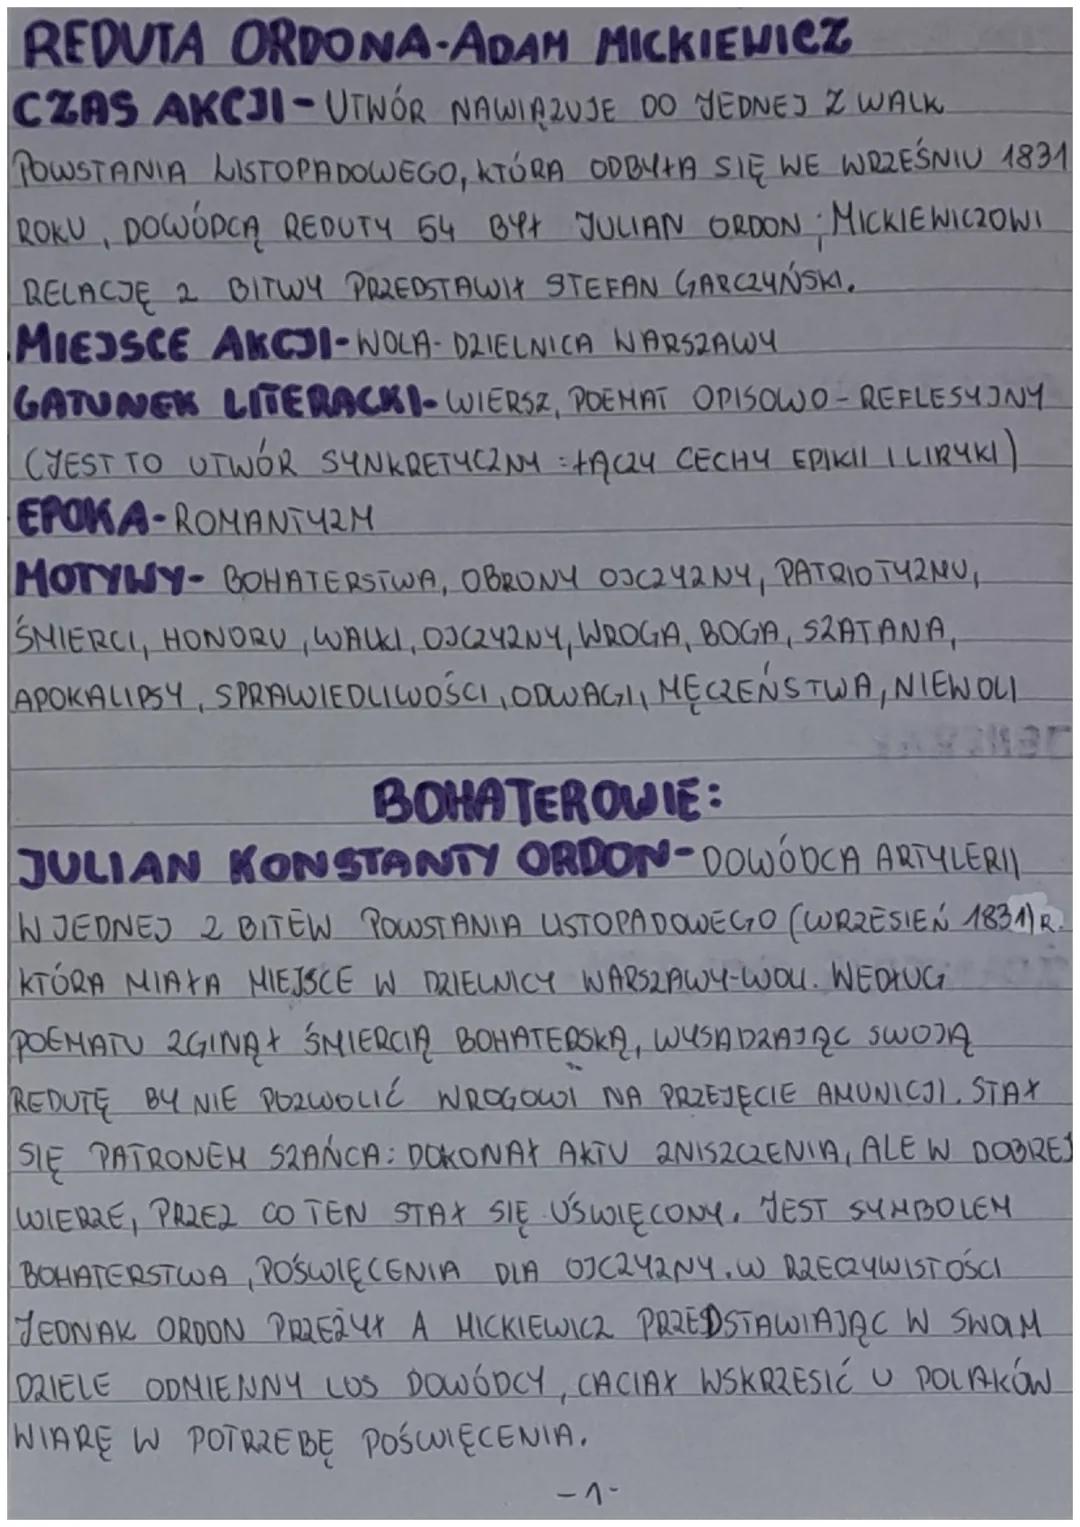 REDUTA ORDONA-ADAM MICKIEWICZ
CZAS AKCJI-UTWÓR NAWIĄZUJE DO JEDNEJ Z WALK
POWSTANIA LISTOPADOWEGO, KTÓRA ODBYŁA SIĘ WE WRZEŚNIU 1831
ROKU, DOWÓDCĄ REDUTY 54 BYŁ JULIAN ORDON; MICKIEWICZOWI
RELACJĘ Z BITWY PRZEDSTAWIŁ STEFAN GARCZYŃSKI.
MIEJSCE AKCJI-WOLA-DZIELNICA WARSZAWY
GATUNEK LITERACKI-WIERSZ, POEMAT OPISOWO-REFLESYJNY
(JEST TO UTWÓR SYNKRETYCZNY=ŁĄCZY CECHY EPIKII I LIRYKI)
EPOKA-ROMANTYZM
MOTYWY-BOHATERSTWA, OBRONY OJCZYZNY, PATRIOTYZMU,
ŚMIERCI, HONORU, WALKI, OJCZYZNY, WROGA, BOGA, SZATANA,
APOKALIPSY, SPRAWIEDLIWOŚCI, ODWAGI, MĘCZEŃSTWA, NIEWOLI
BOHATEROWIE:
JULIAN KONSTANTY ORDON-DOWÓDCA ARTYLERII
W JEDNEJ Z BITEW POWSTANIA LISTOPADOWEGO (WRZESIEŃ 1831)R.
KTÓRA MIAŁA MIEJSCE W DZIELNICY WARSZAWY-WOLI. WEDŁUG
POEMATU ZGINĄŁ ŚMIERCIĄ BOHATERSKĄ, WYSADZAJĄC SWOJĄ
REDUTĘ BY NIE POZWOLIĆ WROGOWI NA PRZEJĘCIE AMUNICJI. STAŁ
SIĘ PATRONEM SZAŃCA: DOKONAŁ AKTU ZNISZCZENIA, ALE W DOBREJ
WIERZE, PRZEZ CO TEN STAŁ SIĘ UŚWIĘCONY. JEST SYMBOLEM
BOHATERSTWA, POŚWIĘCENIA DLA OJCZYZNY. W RZECZYWISTOŚCI
JEDNAK ORDON PRZEŻYŁ A MICKIEWICZ PRZEDSTAWIAJĄC W SWOIM
DZIELE ODMIENNY LOS DOWÓDCY, CHCIAŁ WSKRZESIĆ U POLAKÓW
WIARĘ W POTRZEBĘ POŚWIĘCENIA.
-1-